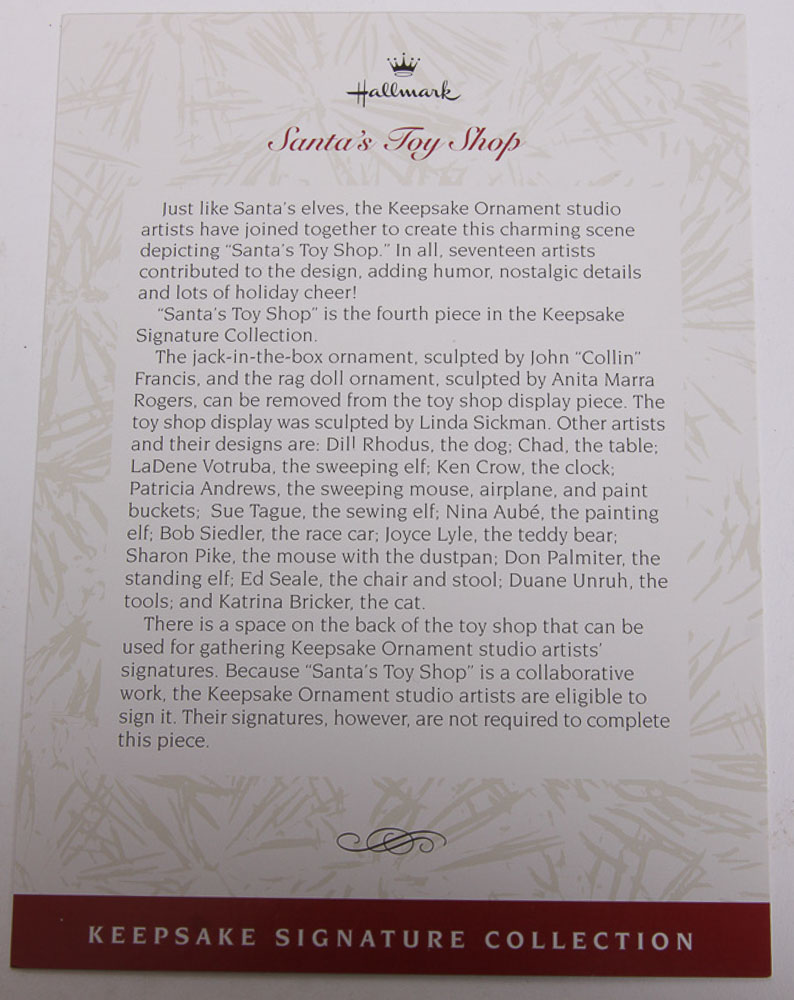 Hallmark
Santa's Toy Shop
Just like Santa's elves, the Keepsake Ornament studio
artists have joined together to create this charming scene
depicting "Santa's Toy Shop." In all, seventeen artists
contributed to the design, adding humor, nostalgic details
and lots of holiday cheer!
"Santa's Toy Shop" is the fourth piece in the Keepsake
Signature Collection.
The jack-in-the-box ornament, sculpted by John "Collin"
Francis, and the rag doll ornament, sculpted by Anita Marra
Rogers, can be removed from the toy shop display piece. The
toy shop display was sculpted by Linda Sickman. Other artists
and their designs are: Dill Rhodus, the dog; Chad, the table;
LaDene Votruba, the sweeping elf; Ken Crow, the clock;
Patricia Andrews, the sweeping mouse, airplane, and paint
buckets; Sue Tague, the sewing elf; Nina Aubé, the painting
elf; Bob Siedler, the race car; Joyce Lyle, the teddy bear;
Sharon Pike, the mouse with the dustpan; Don Palmiter, the
standing elf; Ed Seale, the chair and stool; Duane Unruh, the
tools; and Katrina Bricker, the cat.
There is a space on the back of the toy shop that can be
used for gathering Keepsake Ornament studio artists'
signatures. Because "Santa's Toy Shop" is a collaborative
work, the Keepsake Ornament studio artists are eligible to
sign it. Their signatures, however, are not required to complete
this piece.
KEEPSAKE SIGNATURE COLLECTION